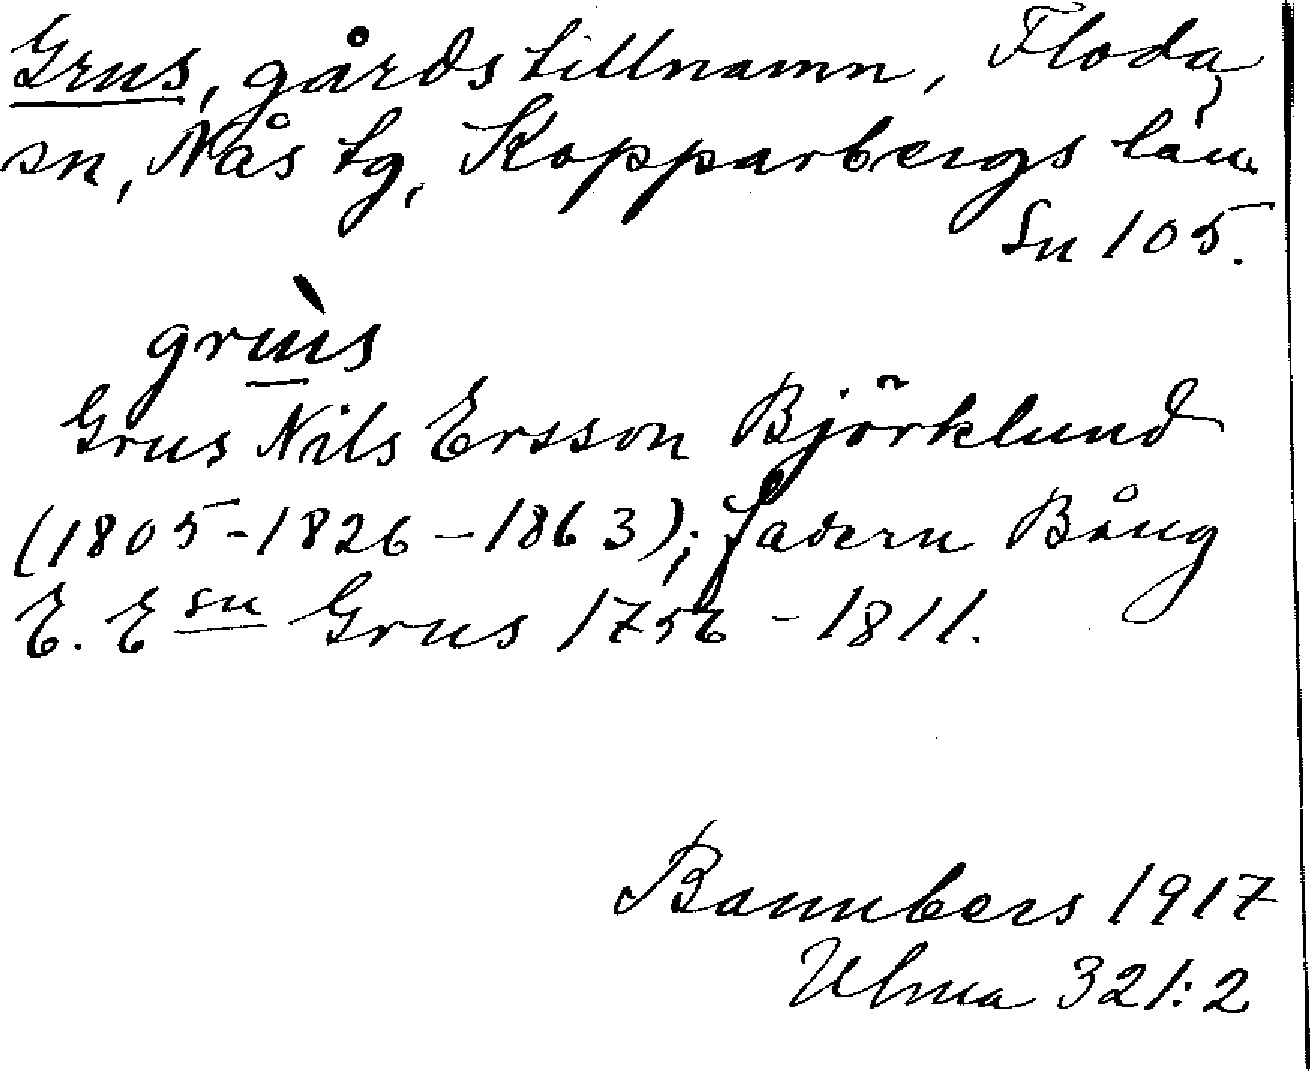 Grus, gårdstillnamn, Floda
sn, Nås tg, Kopparbergs län
Sn 105.
grùs
Grus Nils Ersson Björklund
(1805-1826-1863); fadern Bång
E. E sn Grus 1756 - 1811.
Bannbers 1917
Ulma 321:2